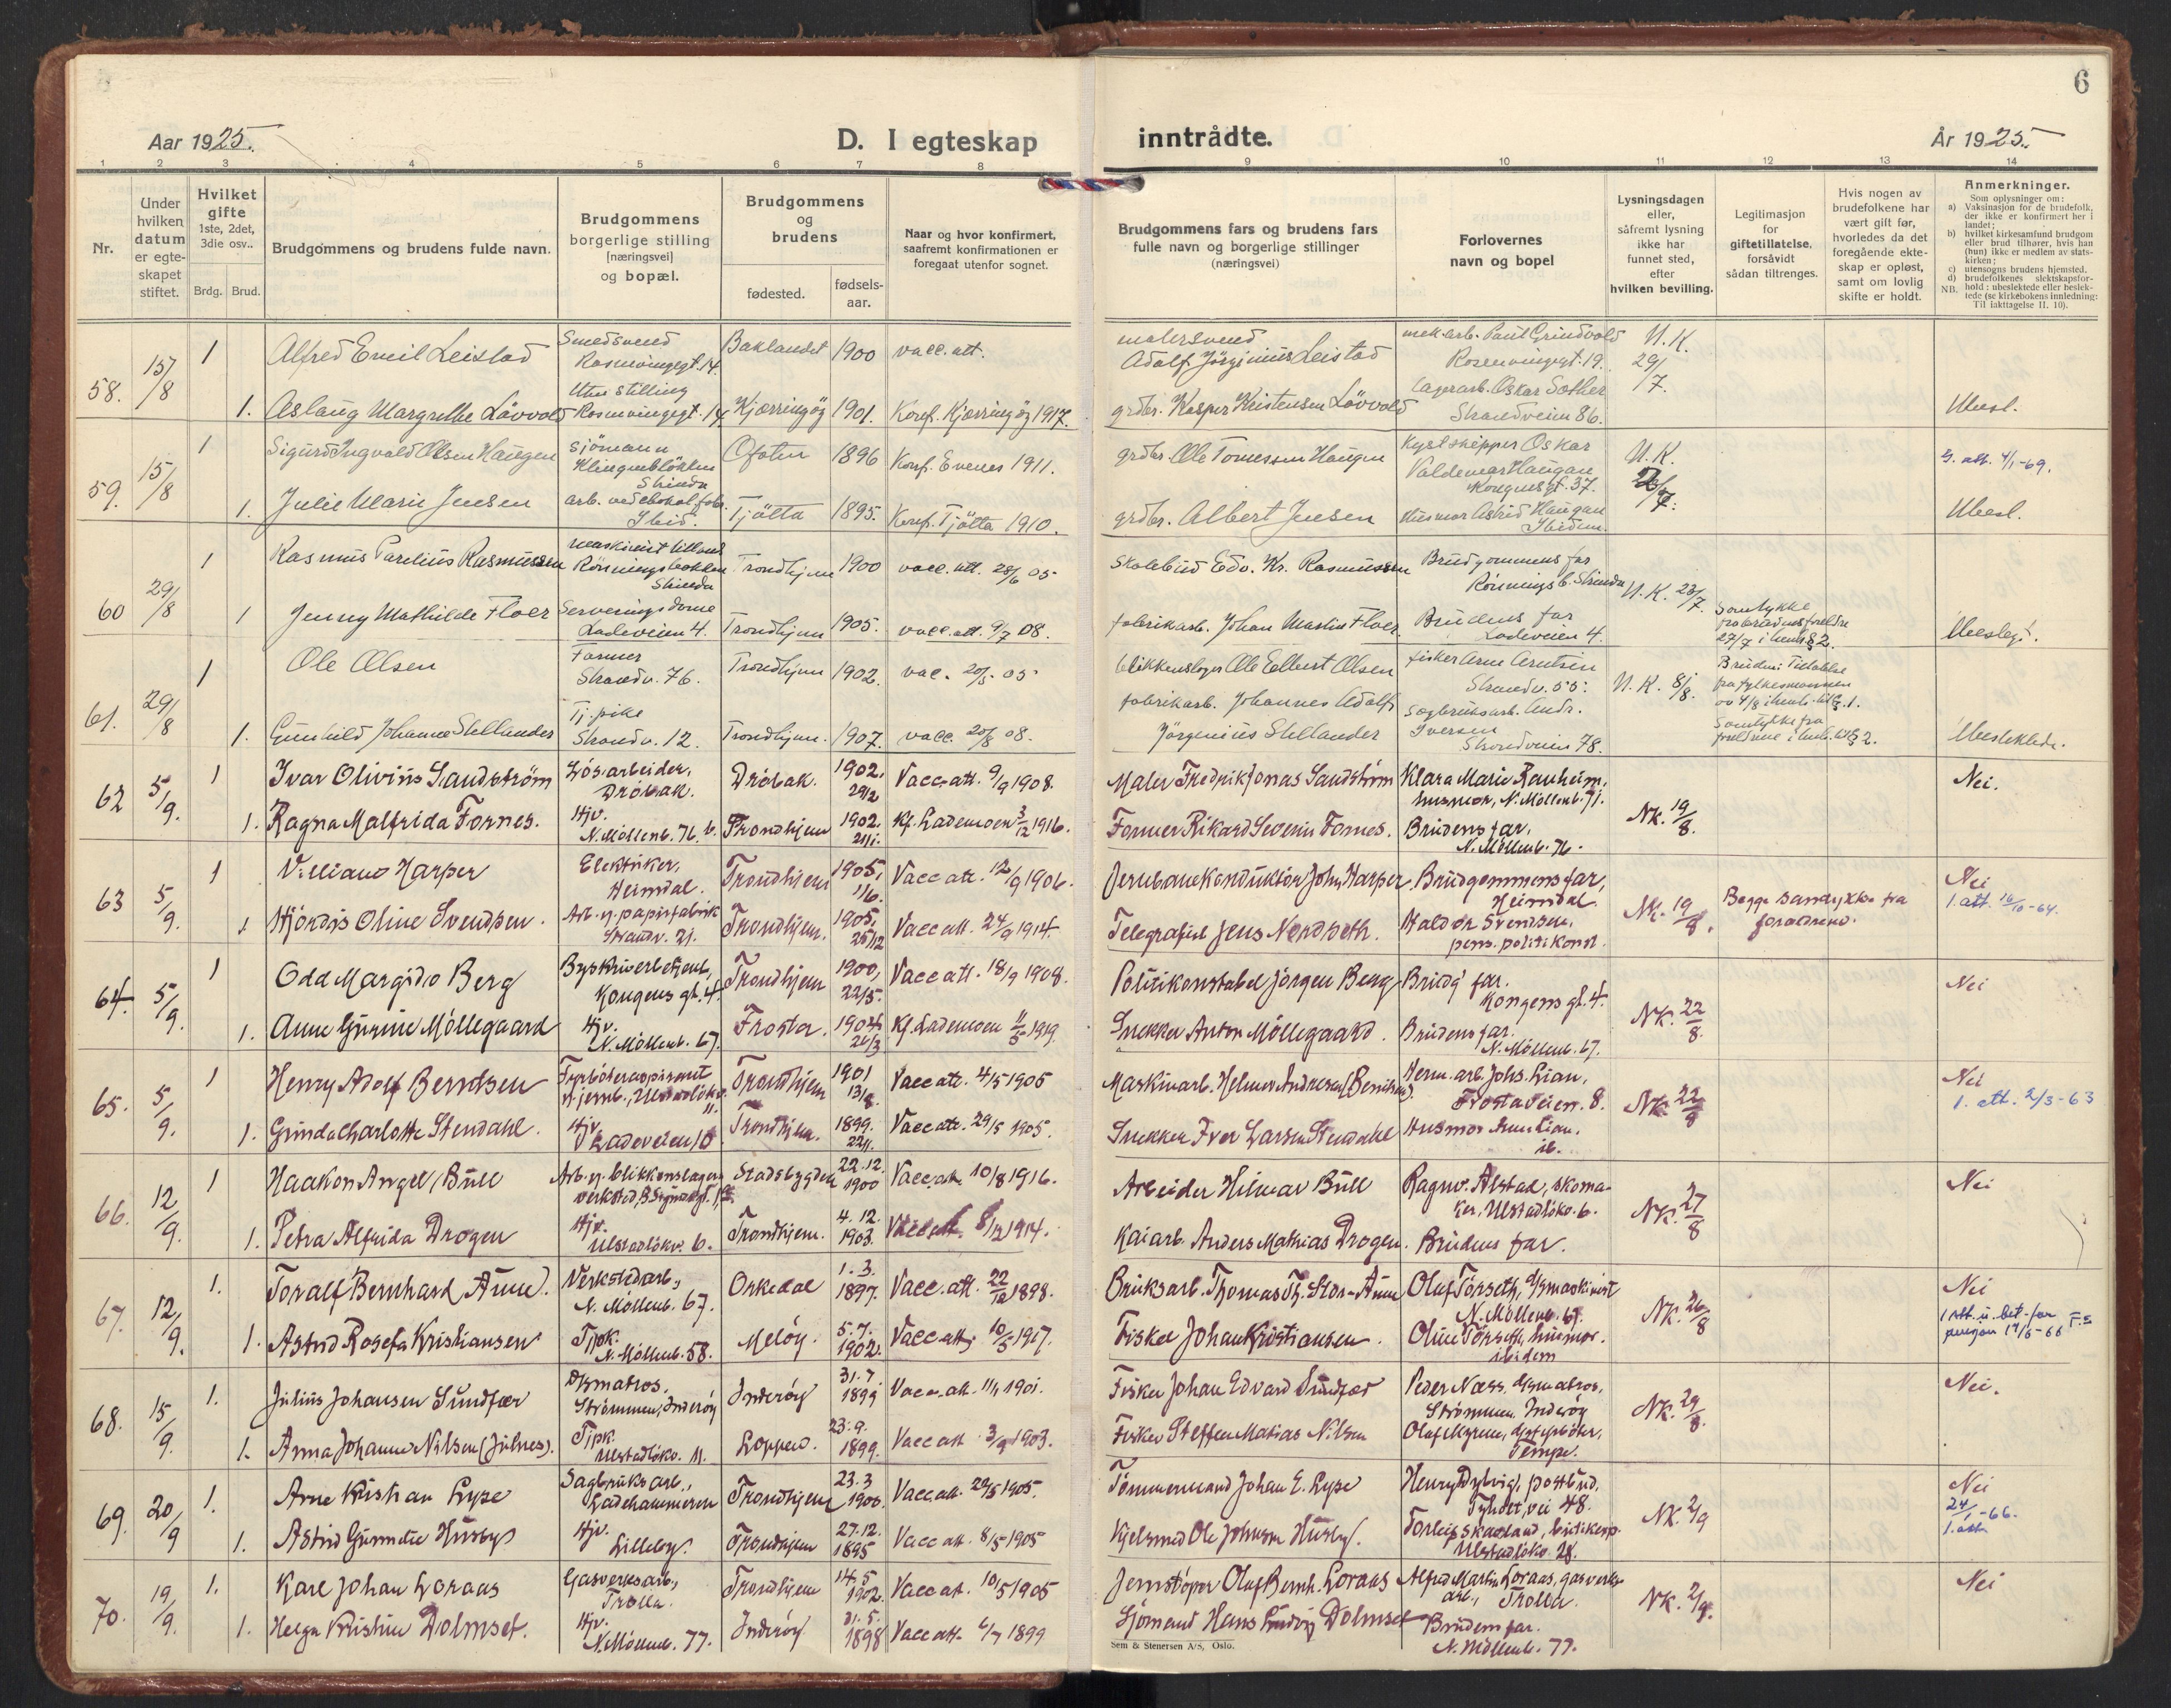 6
Aar 1925.
D. I egteskap
inntrådte.
År 1925.
1 2 3 4 5 6 7 8 9 10 11 12 13 14
Nr.
Under hvilken datum er egteskapet stiftet.
Hvilket gifte 1ste, 2det, 3die osv..
Brdg. Brud.
Brudgommens og brudens fulde navn.
Brudgommens borgerlige stilling [næringsvei] og bopæl.
Brudgommens og brudens
fødested.
fødsels-aar.
Naar og hvor konfirmert, saafremt konfirmationen er foregaat utenfor sognet.
Brudgommens fars og brudens fars fulle navn og borgerlige stillinger (næringsvei)
Forlovernes navn og bopel
Lysningsdagen eller, såfremt lysning ikke har funnet sted, efter hvilken bevilling.
Legitimasjon for giftetillatelse, forsåvidt sådan tiltrenges.
Hvis nogen av brudefolkene har vært gift før, hvorledes da det foregående ekteskap er opløst, samt om lovlig skifte er holdt.
Anmerkninger.
Som oplysninger om:
a) Vaksinasjon for de brudefolk, der ikke er konfirmert her i landet;
b) hvilket kirkesamfund brudgom eller brud tilhører, hvis han (hun) ikke er medlem av statskirken;
c) utensogns brudens hjemsted.
d) brudefolkenes slektskapsforhold: ubeslektede eller beslektede (se kirkebokens innledning: Til iakttagelse II. 10).
NB.
58. 15/8 1 Alfred Emil Leistad Smedsvend Rosenvingegt. 14. Baklandet 1900 vacc. att. malersvend Adolf Jörginius Leistad mek. arb. Paul Grindvold Rosenvingegt. 19. N.K. 29/7.
1. Aslaug Margrethe Lövvold Uten stilling Rosenvingegt. 14 Kjærringöy 1901. Konf. Kjærringöy 1917. grdbr. Kasper Kristensen Lövvold lagerarb. Oskar Sæther Strandveien 86. Ubesl.
59. 15/8 1 Sigurd Ingvald Olsen Haugen Sjömann Klingenbløkken Strinda Ofoten 1896 Konf. Evenes 1911. grdbr. Ole Tomessen Haugen Kystskipper Oskar Valdemar Haugan Kongensgt. 37. N.K. 9. att. 4/1-69.
1. Julie Marie Jensen Ibid. Tjötta 1895. Konf. Tjötta 1910. grdbr. Albert Jensen Husmor Astrid Haugan Ibidem. Ubesl.
60 29/8 1 Rasmus Parelius Rasmussen Rönningsbakken Strinda Trondhjem 1900 vacc. att. 28/6 05 Skolebud Edv. Kr. Rasmussen Brudgommens far Rönningsb. Strinda N.K. 23/7.
1 Jenny Mathilde Floer Serveringsdame Ladeveien 4. Trondhjem 1905. vacc. att. 9/7 08. fabrikarb. Johan Martin Floer Brudens far Ladeveien 4. Samtykke fra brudens foreldre 27/7 i henh. § 2. Ubeslegt.
61. 29/8 1 Ole Olsen Former Strandv. 76. Trondhjem 1902. vac. 20/5. 05 blikkenslager Ole Edbert Olsen fisker Arne Arntsen Strandv. 55. N.K. 8/8. Bruden: Tilladelse fra fylkesmannen av 4/8 i henh. til § 1.
1. Gunhild Johanne Stellander Tj. pike Strandv. 12. Trondhjem. 1907. vacc. 20/8 08. fabrikarb. Johannes Adolf Jörgenius Stellander Sagbruksarb. Andr. Iversen Strandveien 78. Samtykke fra foreldrene i henh. til § 2. Ubeslektede.
62 5/9. 1 Ivar Olivius Sandström Lösarbeider, Dröbak. Dröbak. 1902. 29/2 Vacc. att. 9/9 1908. Maler Fredrik Jonas Sandström Klara Marie Ranheim, husmor, N. Möllenb. 71. NK. 19/8. Nei.
1. Ragna Malfrida Fornes. Hjv. N. Möllenb. 76. b. Trondhjem 1902. 21/1. Kf. Lademoen 3/12 1916. Former Rikard Severin Fornes. Brudens far, N. Möllenb. 76.
63 5/9. 1 Villiam Harper Elektriker, Heimdal. Trondhjem 1905, 1/6. Vacc att. 12/9 1906. Jernbanekonduktör John Harper Brudgommens far, Heimdal. NK. 19/8. Begge samtykke fra foreldrene. Nei 1. att. 16/10-64.
1 Hjördis Oline Svendsen. Arb. v. papirfabrik Strandv. 21. Trondhjem. 1905, 25/12 Vacc att. 24/9 1914. Telegrafist Jens Nordseth. Haldor Svendsen, pens. politikonst.
64. 5/9. 1 Odd Margido Berg Byskriverbetjent, Kongens gt. 4. Trondhjem 1900, 22/5. Vacc att. 18/9 1908. Politikonstabel Jörgen Berg Brudg. far. Kongens gt. 4. NK. 22/8. Nei
1. Anne Gurine Möllegaard Hjv. N. Möllenb. 67. Frosta. 1904 21/3 Kf. Lademoen 11/5 1919. Snekker Anton Möllegaard. Brudens far. N. Möllenb. 67.
65. 5/9. 1 Henry Adolf Berntsen Fyrböteraspirant v. jernb., Ulstadlökv. 11. Trondhjem 1901 13/8. Vacc att. 4/5 1905 Maskinarb. Helmer Andresen (Berntsen). Herm. arb. Johs. Lian, Frostaveien. 8. NK. 22/8 Nei 1. att. 2/3-63
1. Grinda Charlotte Stendahl. Hjv. Ladeveien 10 Trondhjem. 1899. 22/1. Vacc att. 29/5 1905. Snekker Iver Larsen Stendahl Husmor Anne Lian, ib.
66. 12/9. 1 Haakon Angel Bull Arb. v. blikkenslagerverksted, Stadsbygden 22.12. 1900 Vacc. att. 10/8 1916. Arbeider Hilmar Bull Ragnv. Alstad, skomaker, Ulstadlökv. 6. NK. 27/8 Nei
1. Petra Alfrida Drogen Hjv. Ulstadlökv. 6. Trondhjem. 4.12. 1903. Vacc att. 8/12 1914. Kaiarb. Anders Mathias Drogen. Brudens far.
67. 12/9. 1. Toralf Bernhard Aune. Verkstedarb., N. Möllenb. 67. Orkedal 1.3. 1897. Vacc. att. 22/12 1898. Bruksarb. Thomas Th. Stor-Aune Olaf Törseth, d/smaskinist N. Möllenb. 67. NK. 26/8 Nei
1. Astrid Rosefa Kristiansen Tjpk. N. Möllenb. 58. Melöy. 5.7. 1902. Vacc att. 10/5 1907. Fisker Johan Kristiansen. Oline Törseth, husmor. ibidem
68. 15/9. 1. Julius Johansen Sundfær D/smatros. Strömmen, Inderöy Inderöy 31.7. 1899 Vacc. att. 11/1 1901. Fisker Johan Edvard Sundfær Peder Næss, d/smatros. Strömmen, Inderöy NK. 29/8. Nei.
1. Anna Johanne Nilsen (Julnes). Tjpk. Ulstadlökv. 11. Loppen. 23.9. 1899. Vacc att. 3/9 1903. Fisker Steffen Matias Nilsen Olaf Myrem, d/sfyrböter, Tempe.
69. 20/9 1. Arne Kristian Lype Sagbruksarb., Ladehammeren Trondhjem 23.3 1900. Vacc. att. 29/5 1905. Tömmermand Johan E. Lype Henry Dybvig, postbud, NK. 2/9 Nei 24/1-66. 1. att.
1. Astrid Gunndie Husby Hjv. Lilleby. Trondhjem 27.12. 1895 Vacc att. 8/5 1905 Kjelsmed Ole Johnsen Husby. Torleif Skarland, Ulstadlökv. 28.
70. 19/9. 1. Karl Johan Loraas Gasverksarb., Trolla. Trondhjem 14.5 1902. Vacc at. 10/5 1905 Jernstöper Olaf Bernh. Loraas Alfred Martin Loraas, gasverksarb., Trolla. NK. 2/9. Nei
1. Helga Kristine Dolmset. Hjv. N. Möllenb. 77. Inderöy 31.5. 1898 Vacc att. 6/7 1899 Sjömand Hans Ludvig Dolmset Brudens far. N. Möllenb. 77.
Sem & Stenersen A/S, Oslo.